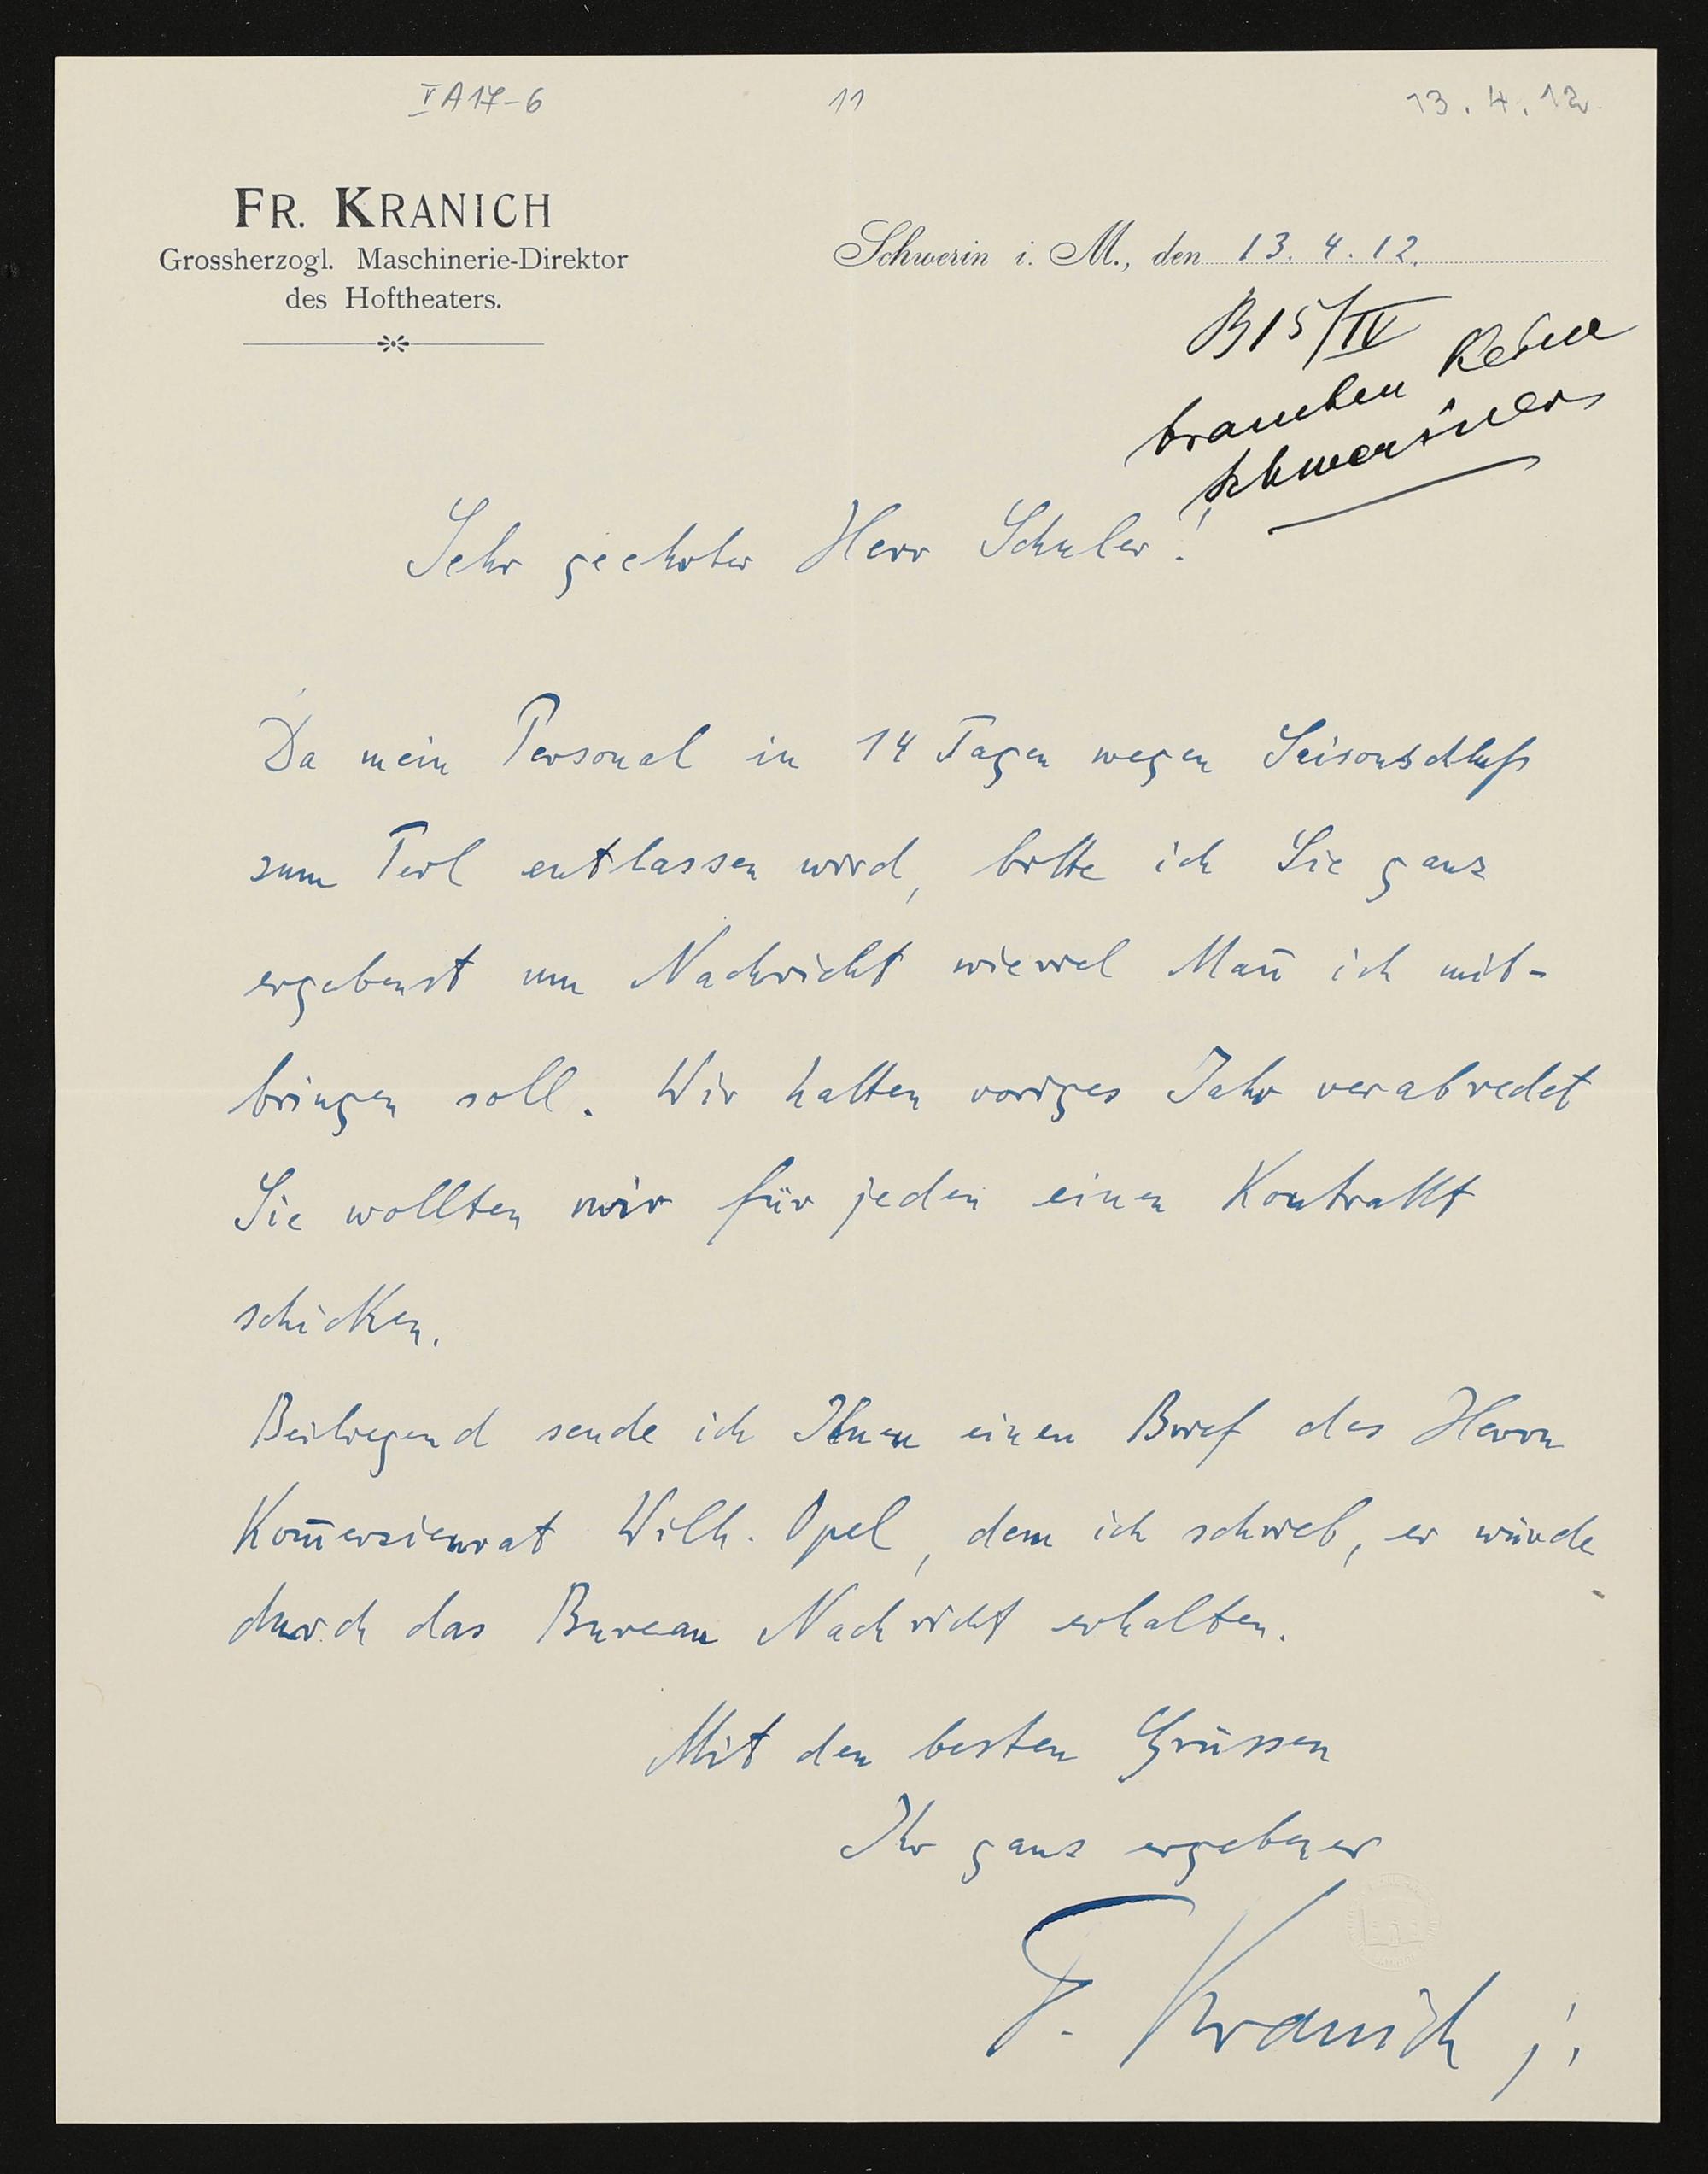 V A 17-6 11 13.4.12.
FR. KRANICH
Grossherzogl. Maschinerie-Direktor
des Hoftheaters.
Schwerin i. M., den 13. 4. 12.
B 15/IV
brauchen keine
Schweriner
Sehr geehrter Herr Schuler!
Da mein Personal in 14 Tagen wegen Saisonschluß
zum Teil entlassen wird, bitte ich Sie ganz
ergebenst um Nachricht wieviel Man̄ ich mit-
bringen soll. Wir hatten voriges Jahr verabredet
Sie wollten mir für jeden einen Kontrakt
schicken.
Beiliegend sende ich Ihnen einen Brief des Herrn
Kom̄erzienrat Wilh. Opel, dem ich schrieb, er würde
durch das Bureau Nachricht erhalten.
Mit den besten Grüssen
Ihr ganz ergebener
F. Kranich j.